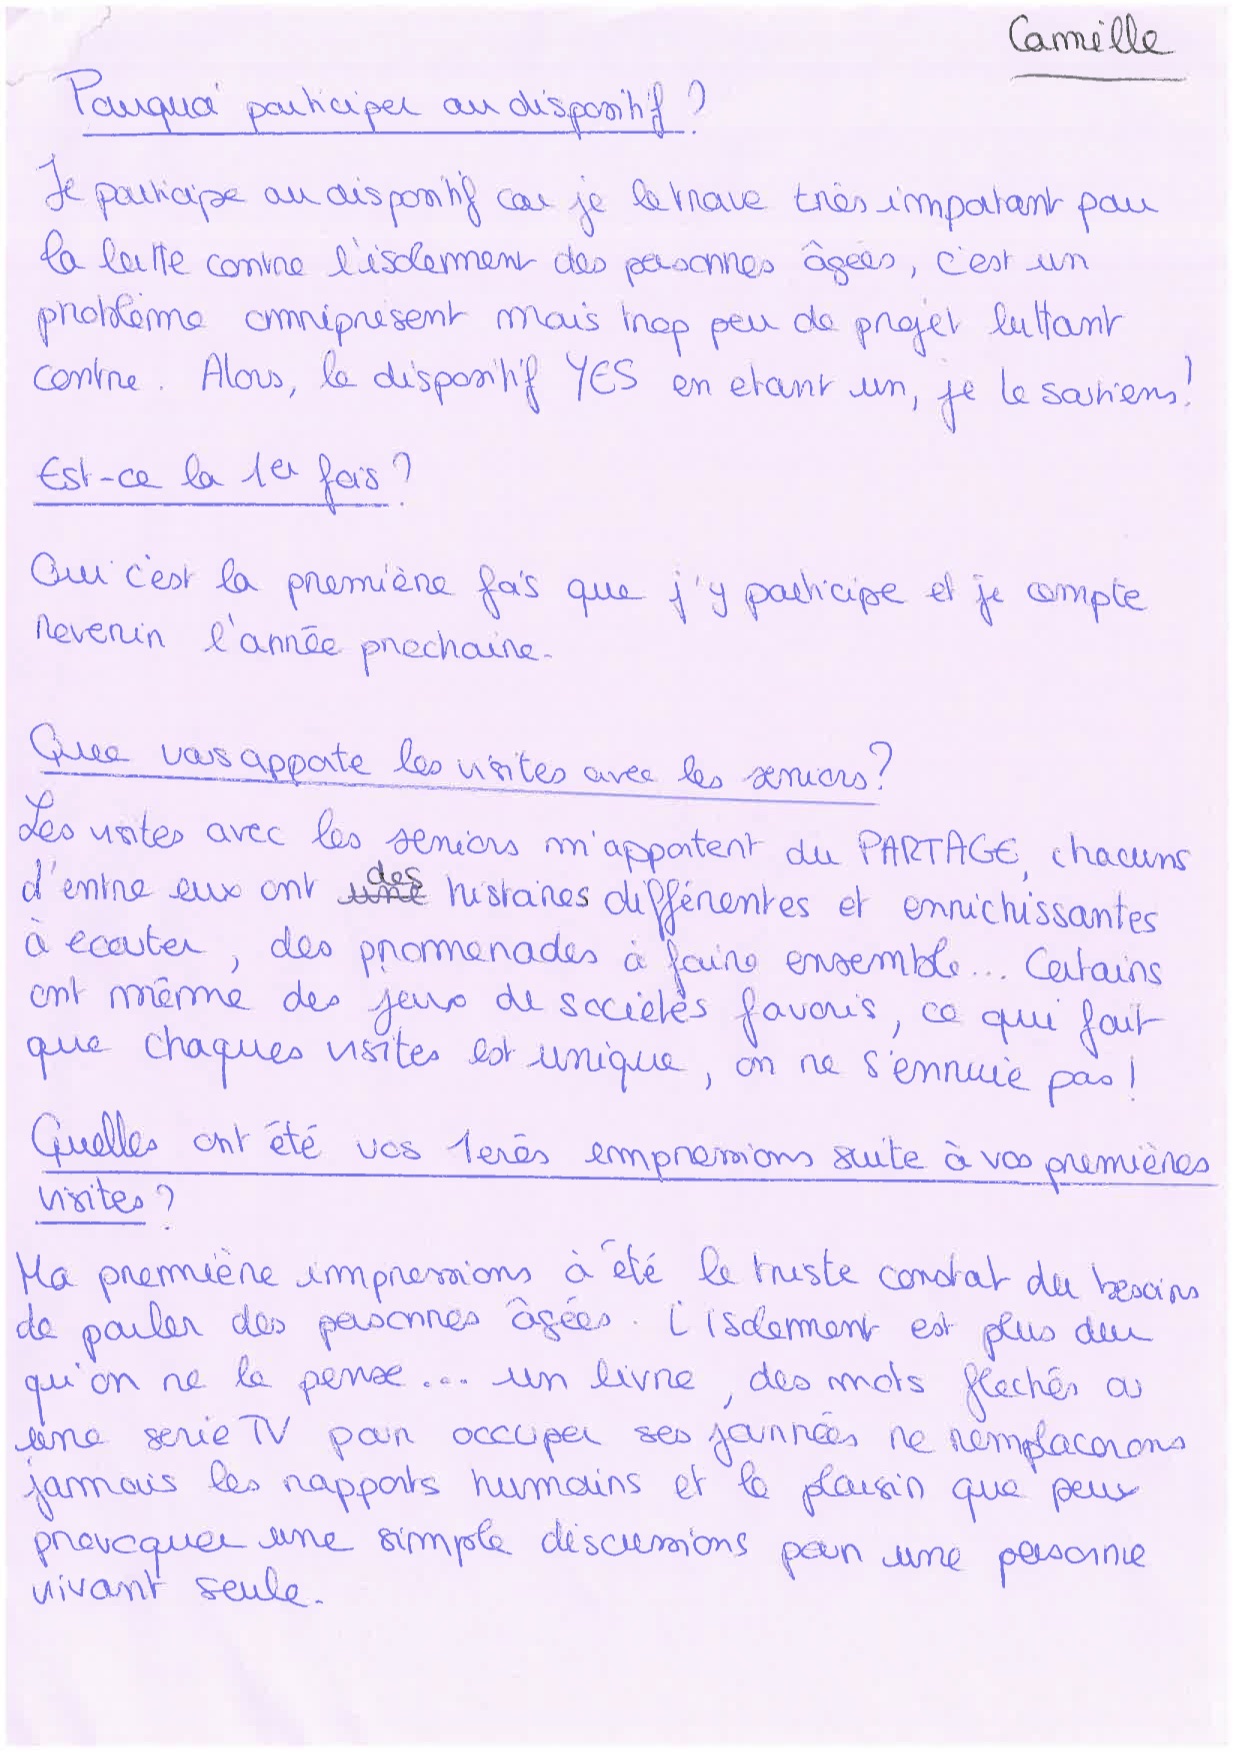 Camille
Pourquoi participer au dispositif ?
Je participe au dispositif car je le trouve très important pour
la lutte contre l'isolemment des personnes âgées, c'est un
problème omniprésent mais trop peu de projet luttant
contre. Alors, le dispositif YES en etant un, je le soutiens !
Est-ce la 1er fois ?
Oui c'est la première fois que j'y participe et je compte
revenir l'année prochaine.
Que vous apporte les visites avec les seniors ?
Les visites avec les seniors m'apportent du PARTAGE, chacuns
d'entre eux ont des histoires différentes et enrichissantes
à ecouter, des promenades à faire ensemble... Certains
ont même des jeux de sociétés favoris, ce qui fait
que chaques visites est unique, on ne s'ennuie pas !
Quelles ont été vos 1erès empressions suite à vos premières
visites ?
Ma première impressions à été le triste constat du besoins
de parler des personnes âgées. L'isolemment est plus dur
qu'on ne le pense... un livre, des mots flechés ou
une serie TV pour occuper ses journées ne remplacerons
jamais les rapports humains et le plaisir que peux
provoquer une simple discussions pour une personne
vivant seule.